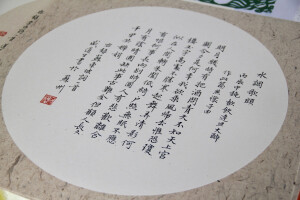 水調歌頭
丙辰中秋歡飲達旦大醉
作此篇兼懷子由
明月幾時有把酒問青天不知天上宮
闕今夕是何年我欲乘風歸去惟恐瓊
樓玉宇高處不勝寒起舞弄清影何
似在人間轉朱閣低綺戶照無眠不應
有恨何事長向別時圓人有悲歡離合
月有陰晴圓缺此事古難全但願人長久
千里共嬋娟
蘇東坡詞一首